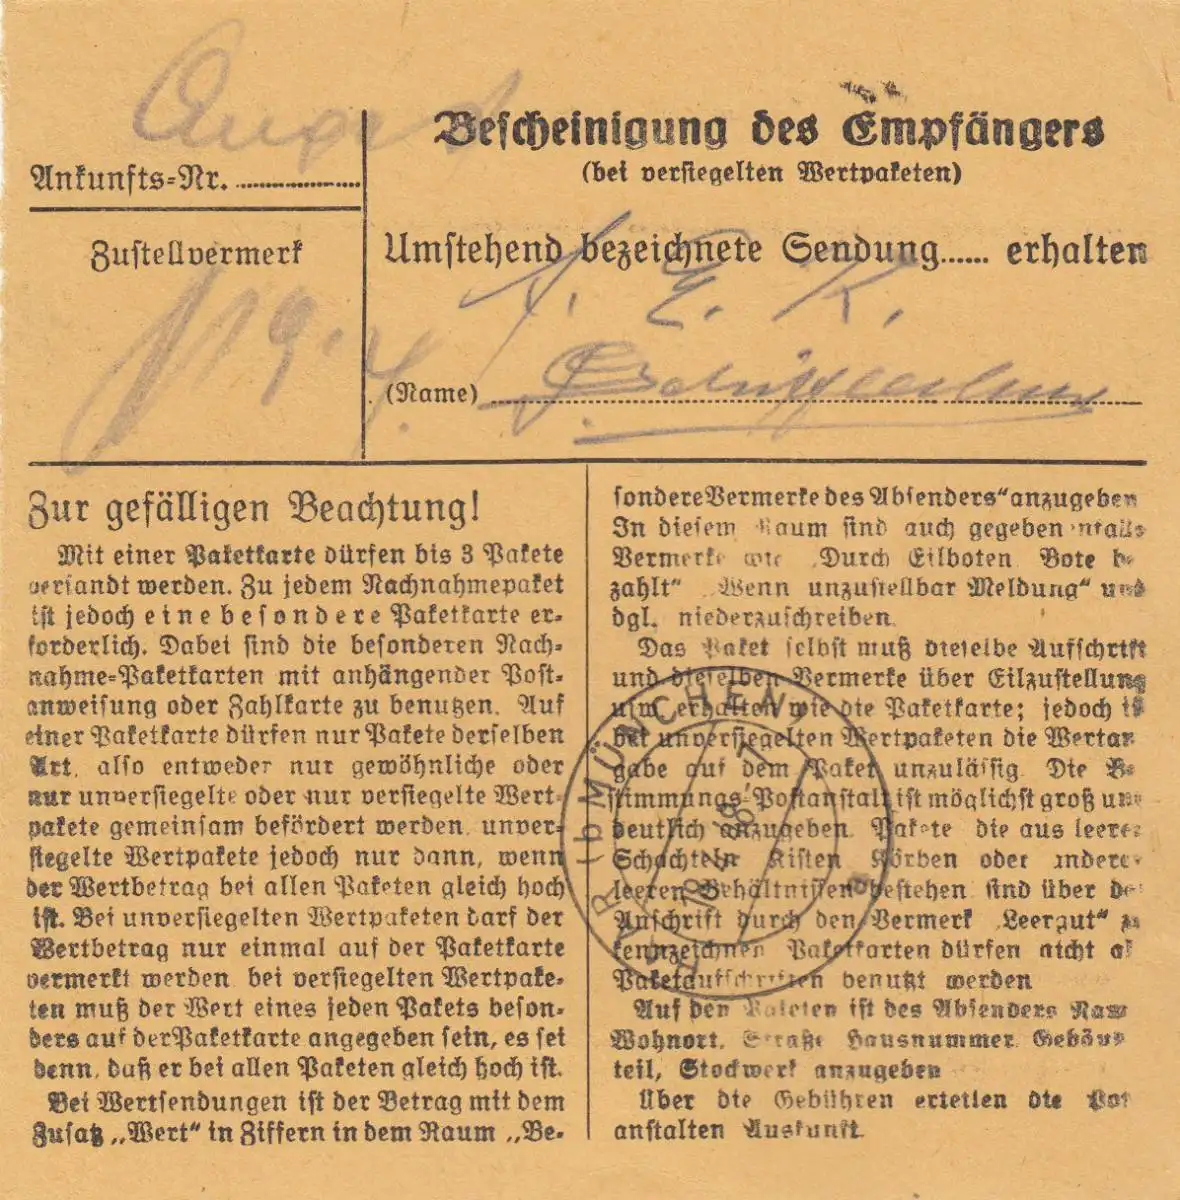 Bescheinigung des Empfängers
(bei versiegelten Wertpaketen)
Ankunfts-Nr. ................
Zustellvermerk
19.4.
Umstehend bezeichnete Sendung...... erhalten
A. E. K.
(Name)
Zur gefälligen Beachtung!
Mit einer Paketkarte dürfen bis 3 Pakete
versandt werden. Zu jedem Nachnahmepaket
ist jedoch eine besondere Paketkarte er-
forderlich. Dabei sind die besonderen Nach-
nahme-Paketkarten mit anhängender Post-
anweisung oder Zahlkarte zu benutzen. Auf
einer Paketkarte dürfen nur Pakete derselben
Art, also entweder nur gewöhnliche oder
nur unversiegelte oder nur versiegelte Wert-
pakete gemeinsam befördert werden, unver-
siegelte Wertpakete jedoch nur dann, wenn
der Wertbetrag bei allen Paketen gleich hoch
ist. Bei unversiegelten Wertpaketen darf der
Wertbetrag nur einmal auf der Paketkarte
vermerkt werden, bei versiegelten Wertpake-
ten muß der Wert eines jeden Pakets beson-
ders auf der Paketkarte angegeben sein, es sei
denn, daß er bei allen Paketen gleich hoch ist.
Bei Wertsendungen ist der Betrag mit dem
Zusatz „Wert" in Ziffern in dem Raum „Be-
sondere Vermerke des Absenders" anzugeben
In diesem Raum sind auch gegebenenfalls
Vermerke wie „Durch Eilboten Bote be
zahlt" „Wenn unzustellbar Meldung" und
dgl. niederzuschreiben.
Das Paket selbst muß dieselbe Aufschrift
und dieselben Vermerke über Eilzustellung
usw erhalten wie die Paketkarte; jedoch ist
bei unversiegelten Wertpaketen die Wertan
gabe auf dem Paket unzulässig. Die Be
stimmungs-Postanstalt ist möglichst groß und
deutlich anzugeben. Pakete die aus leeren
Schachteln Kisten Körben oder anderen
leeren Behältnissen bestehen sind über der
Anschrift durch den Vermerk „Leergut" zu
kennzeichnen Paketkarten dürfen nicht als
Paketaufschriften benutzt werden
Auf den Paketen ist des Absenders Name
Wohnort, Straße Hausnummer, Gebäude
teil, Stockwerk anzugeben
Über die Gebühren erteilen die Post
anstalten Auskunft.
MÜNCHEN